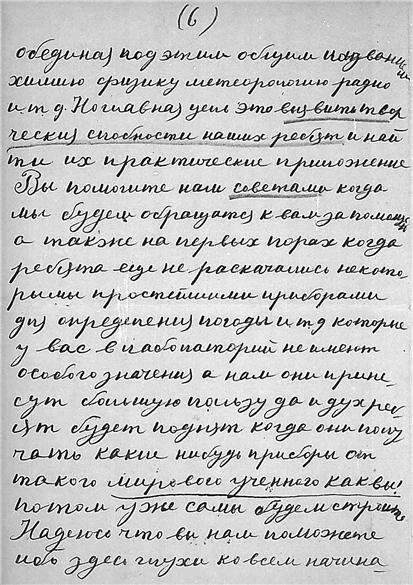 (6)
обединая под этим общим названи
химию физику метеорологию радио
и.т.д. Но главная цель это вызвить твор
ческия спобности наших ребят и най
ти их практические приложение
Вы помогите нам советами когда
мы будем обращатся к вам за помощ
а также на первых порах когда
ребята еще не раскачались некото
рыми простейшими приборами
для определения погоды и.т.д которые
у вас в лаборатории не имеят
особого значения а нам они прине
сут большую пользу да и дух реб
ят будет поднят когда они полу
чать какие нибудь приборы от
такого мирового ученного как вы!
потом уже самы будем строить
Надеюсь что вы нам поможете
ибо здесь глухи ко всем начина